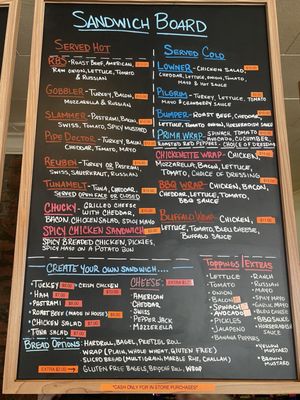 SANDWICH BOARD
SERVED HOT
RBS - ROAST BEEF, AMERICAN,
RAW ONION, LETTUCE, TOMATO
& RUSSIAN
GOBBLER - TURKEY, BACON,
MOZZARELLA & RUSSIAN
SLAMMER - PASTRAMI, BACON,
SWISS, TOMATO, SPICY MUSTARD
PIPE DOCTOR - TURKEY, BACON,
CHEDDAR, TOMATO, MAYO
REUBEN - TURKEY OR PASTRAMI,
SWISS, SAUERKRAUT, RUSSIAN
TUNAMELT - TUNA, CHEDDAR,
SERVED OPEN FACE OR CLOSED
CHUCKY - GRILLED CHEESE
WITH CHEDDAR,
BACON, CHICKEN SALAD, SPICY MAYO
SPICY CHICKEN SANDWICH
SPICY BREADED CHICKEN, PICKLES,
SPICY MAYO ON A POTATO BUN
SERVED COLD
LOWNER - CHICKEN SALAD,
CHEDDAR, LETTUCE, ONION, TOMATO,
MAYO & HOT SAUCE
PILGRIM - TURKEY, LETTUCE, TOMATO,
MAYO & CRANBERRY SAUCE
BUMPER - ROAST BEEF, CHEDDAR,
LETTUCE, TOMATO, ONION, HORSERADISH SAUCE
PRIMA WRAP - SPINACH, TOMATO,
AVOCADO, CUCUMBER,
ROASTED RED PEPPERS, CHOICE OF DRESSING
CHICKENETTE WRAP - CHICKEN,
MOZZARELLA, BACON, LETTUCE,
TOMATO, CHOICE OF DRESSING
BBQ WRAP - CHICKEN, BACON,
CHEDDAR, LETTUCE, TOMATO,
BBQ SAUCE
BUFFALO WRAP CHICKEN,
LETTUCE, TOMATO, BLEU CHEESE,
BUFFALO SAUCE
CREATE YOUR OWN SANDWICH....
TURKEY CRISPY CHICKEN
HAM
PASTRAMI
ROAST BEEF (MADE IN HOUSE)
CHICKEN SALAD
TUNA SALAD
CHEESE:
AMERICAN
CHEDDAR
SWISS
PEPPER JACK
MOZZARELLA
TOPPINGS/EXTRAS
LETTUCE
TOMATO
ONION
BACON
SPINACH
AVOCADO
PICKLES
JALAPENO
BANANA PEPPERS
RANCH
RUSSIAN
MAYO
SPICY MAYO
GARLIC MAYO
BLEU CHEESE
BBQ SAUCE
HORSERADISH
SAUCE
YELLOW
MUSTARD
BROWN
MUSTARD
BREAD OPTIONS: HARD ROLL, BAGEL, PRETZEL ROLL
WRAP (PLAIN, WHOLE WHEAT, GLUTEN FREE)
SLICED BREAD (MULTIGRAIN, MARBLE RYE, CHALLAH)
EXTRA GLUTEN FREE BAGEL, BRIOCHE ROLL, WRAP
*CASH ONLY FOR IN STORE PURCHASES*